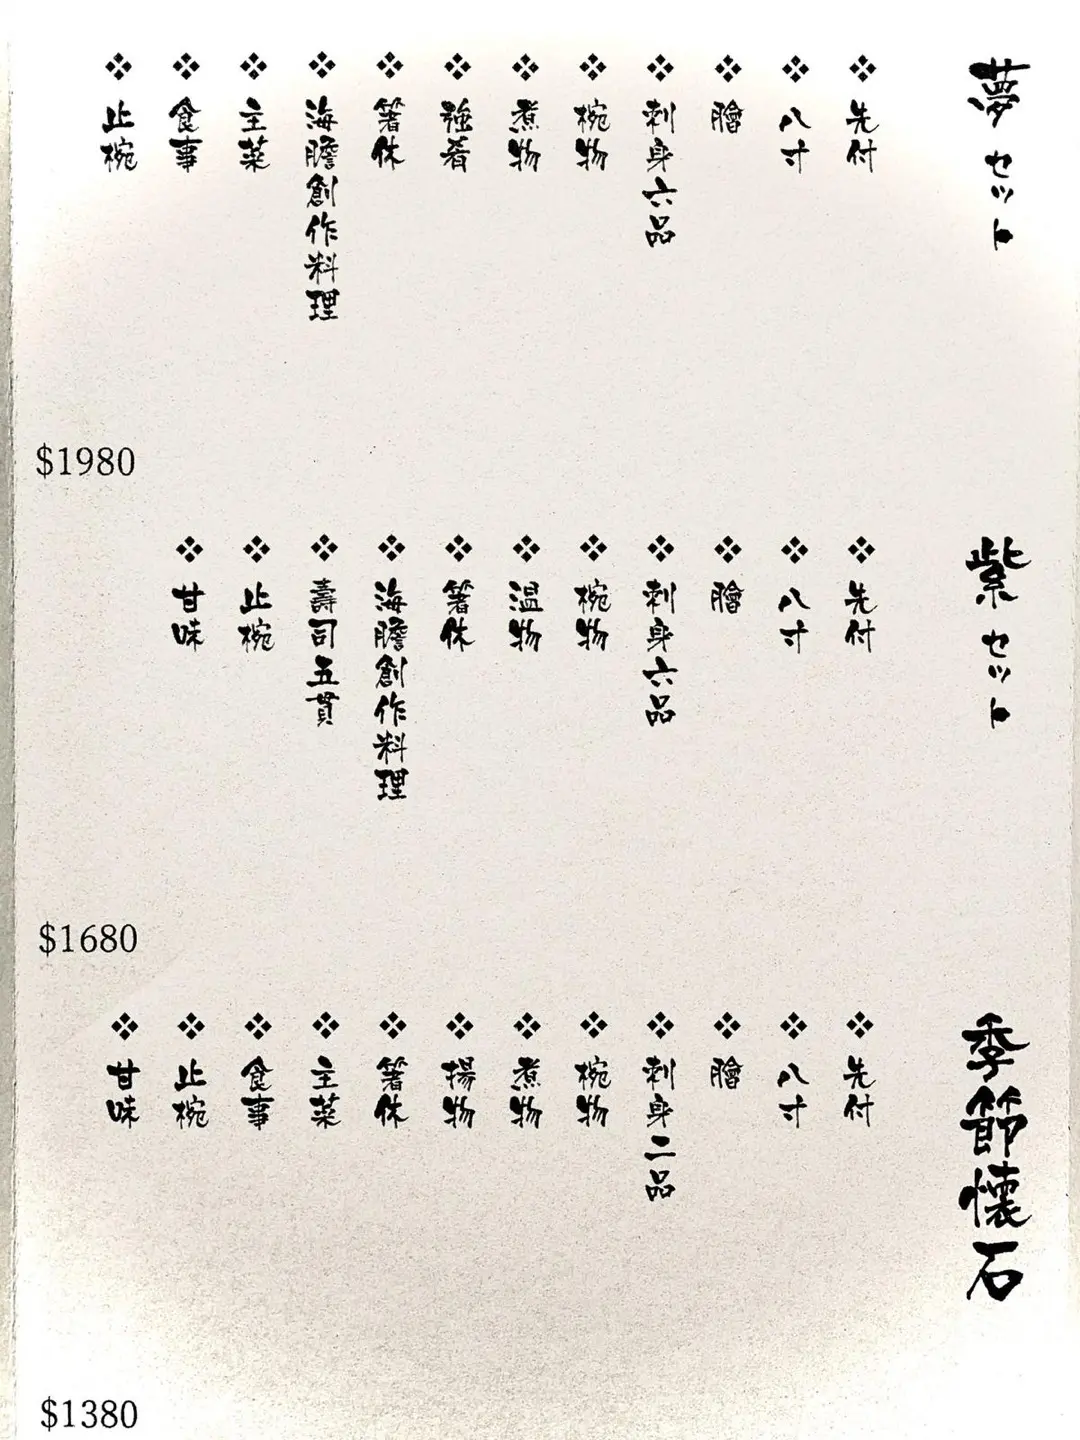 夢 セット
先付
八寸
膾
刺身六品
椀物
煮物
強肴
箸休
海膽創作料理
主菜
食事
止椀
$1980
紫 セット
先付
八寸
膾
刺身六品
椀物
温物
箸休
海膽創作料理
壽司五貫
止椀
甘味
$1680
季節懐石
先付
八寸
膾
刺身二品
椀物
煮物
揚物
箸休
主菜
食事
止椀
甘味
$1380